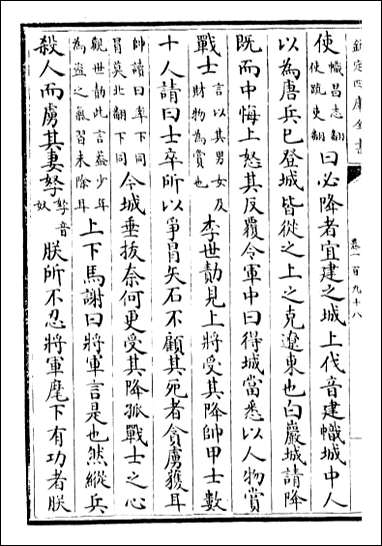 欽定四庫全書
卷一百九十八
使幟昌志翻使疏吏翻曰必降者宜建之城上代音建幟城中人
以為唐兵已登城皆從之上之克遼東也白巖城請降
既而中悔上怒其反覆令軍中曰得城當悉以人物賞
戰士言以其男女及財物為賞也李世勣見上將受其降帥甲士數
十人請曰士卒所以爭冒矢石不顧其死者貪虜獲耳
帥讀曰率下同冒莫北翻下同今城垂拔奈何更受其降孤戰士之心
觀世勣此言蓋少年為盜之氣習未除耳上下馬謝曰將軍言是也然縱兵
殺人而虜其妻孥孥音奴朕所不忍將軍麾下有功者朕